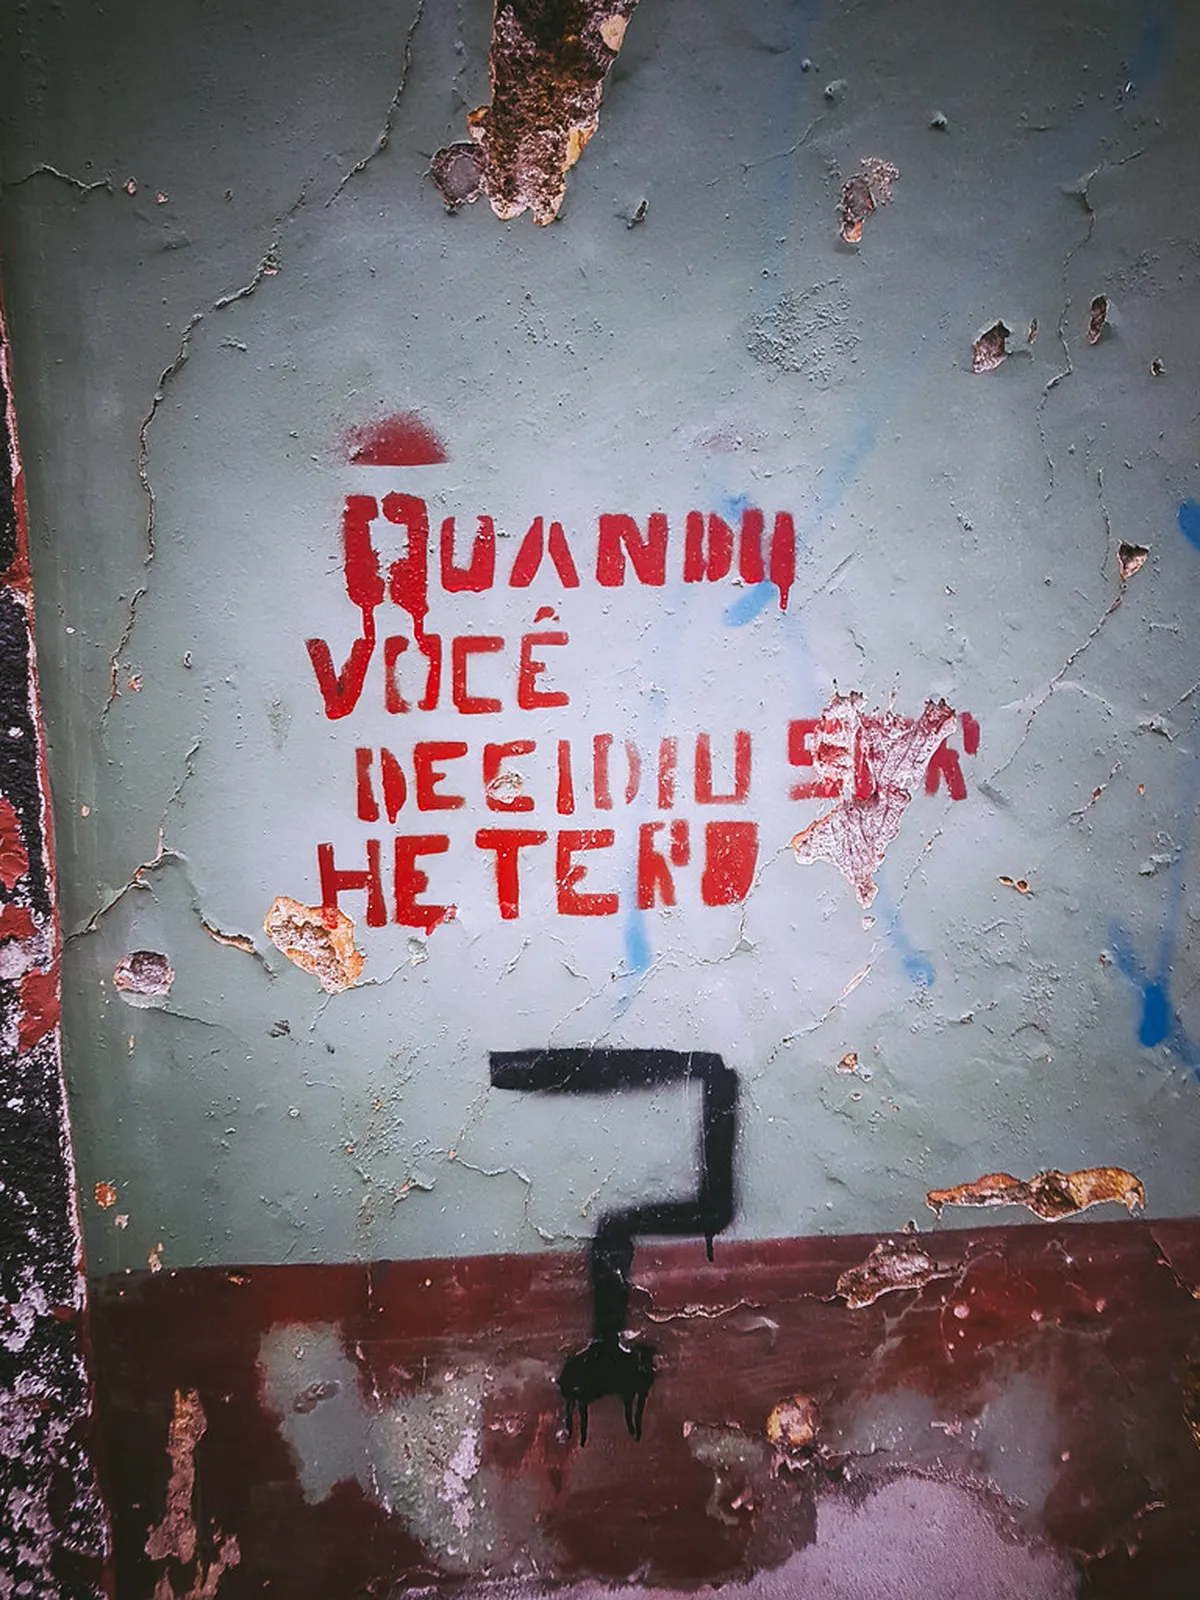 QUANDO
VOCÊ
DECIDIU SER
HETERO
?